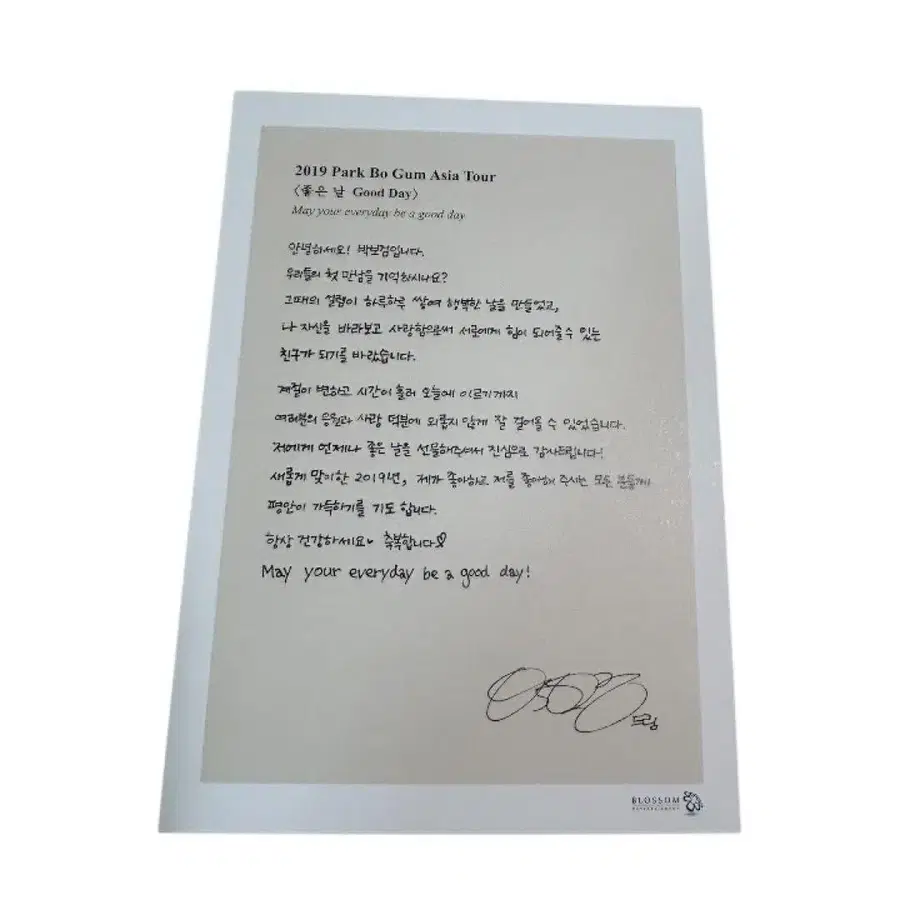 2019 Park Bo Gum Asia Tour
<좋은 날 Good Day>
May your everyday be a good day
안녕하세요! 박보검입니다.
우리들의 첫 만남을 기억하시나요?
그때의 설렘이 하루하루 쌓여 행복한 날을 만들었고,
나 자신을 바라보고 사랑함으로써 서로에게 힘이 되어줄 수 있는
친구가 되기를 바랐습니다.
계절이 변하고 시간이 흘러 오늘에 이르기까지
여러분의 응원과 사랑 덕분에 외롭지 않게 잘 걸어올 수 있었습니다.
저에게 언제나 좋은 날을 선물해주셔서 진심으로 감사드립니다!
새롭게 맞이한 2019년, 제가 좋아하고 저를 좋아해 주시는 모든 분들께
평안이 가득하기를 기도 합니다.
항상 건강하세요♥ 축복합니다
May your everyday be a good day!
드림
BLOSSOM